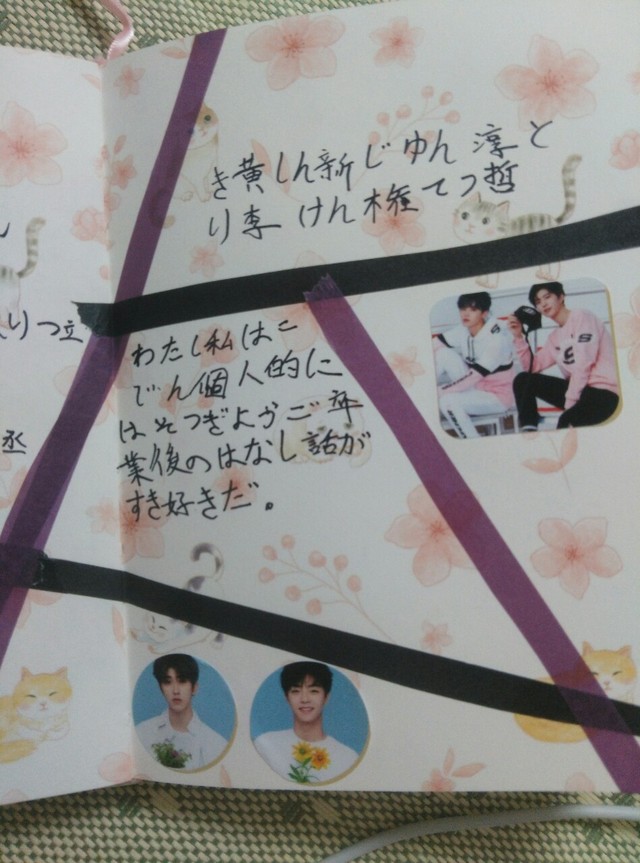 き黄しん新じゅん淳と
り李けん権てつ哲
りつ立
わたし私はこ
じん個人的に
はそつぎょうご卒
業後のはなし話が
すき好きだ。
丞